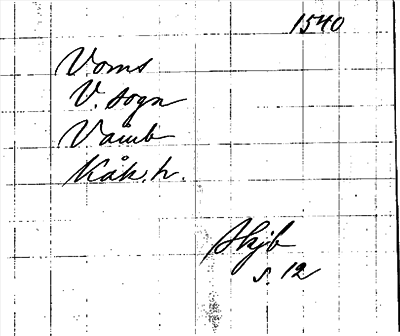 1540
Voms
V. sogn
Våmb
Kåk. h.
Skjb
s. 12